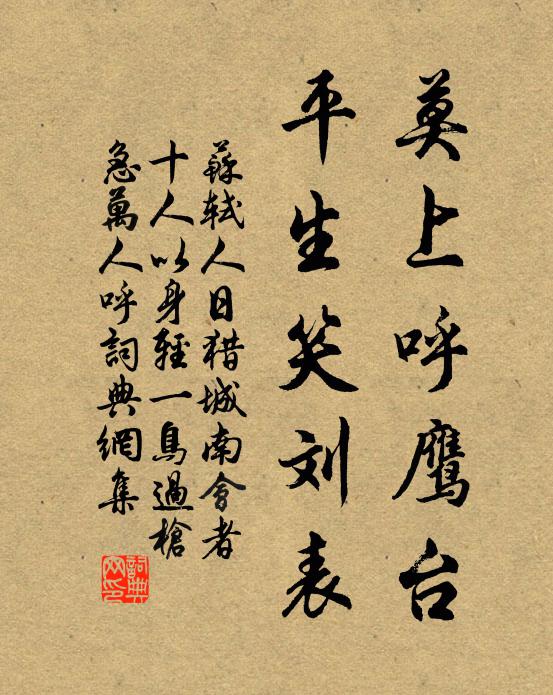 莫上呼鹰台
平生笑刘表
蘇軾人日猎城南會者
十人以身輕一鳥過槍
急萬人呼詞典網集
詞典网印